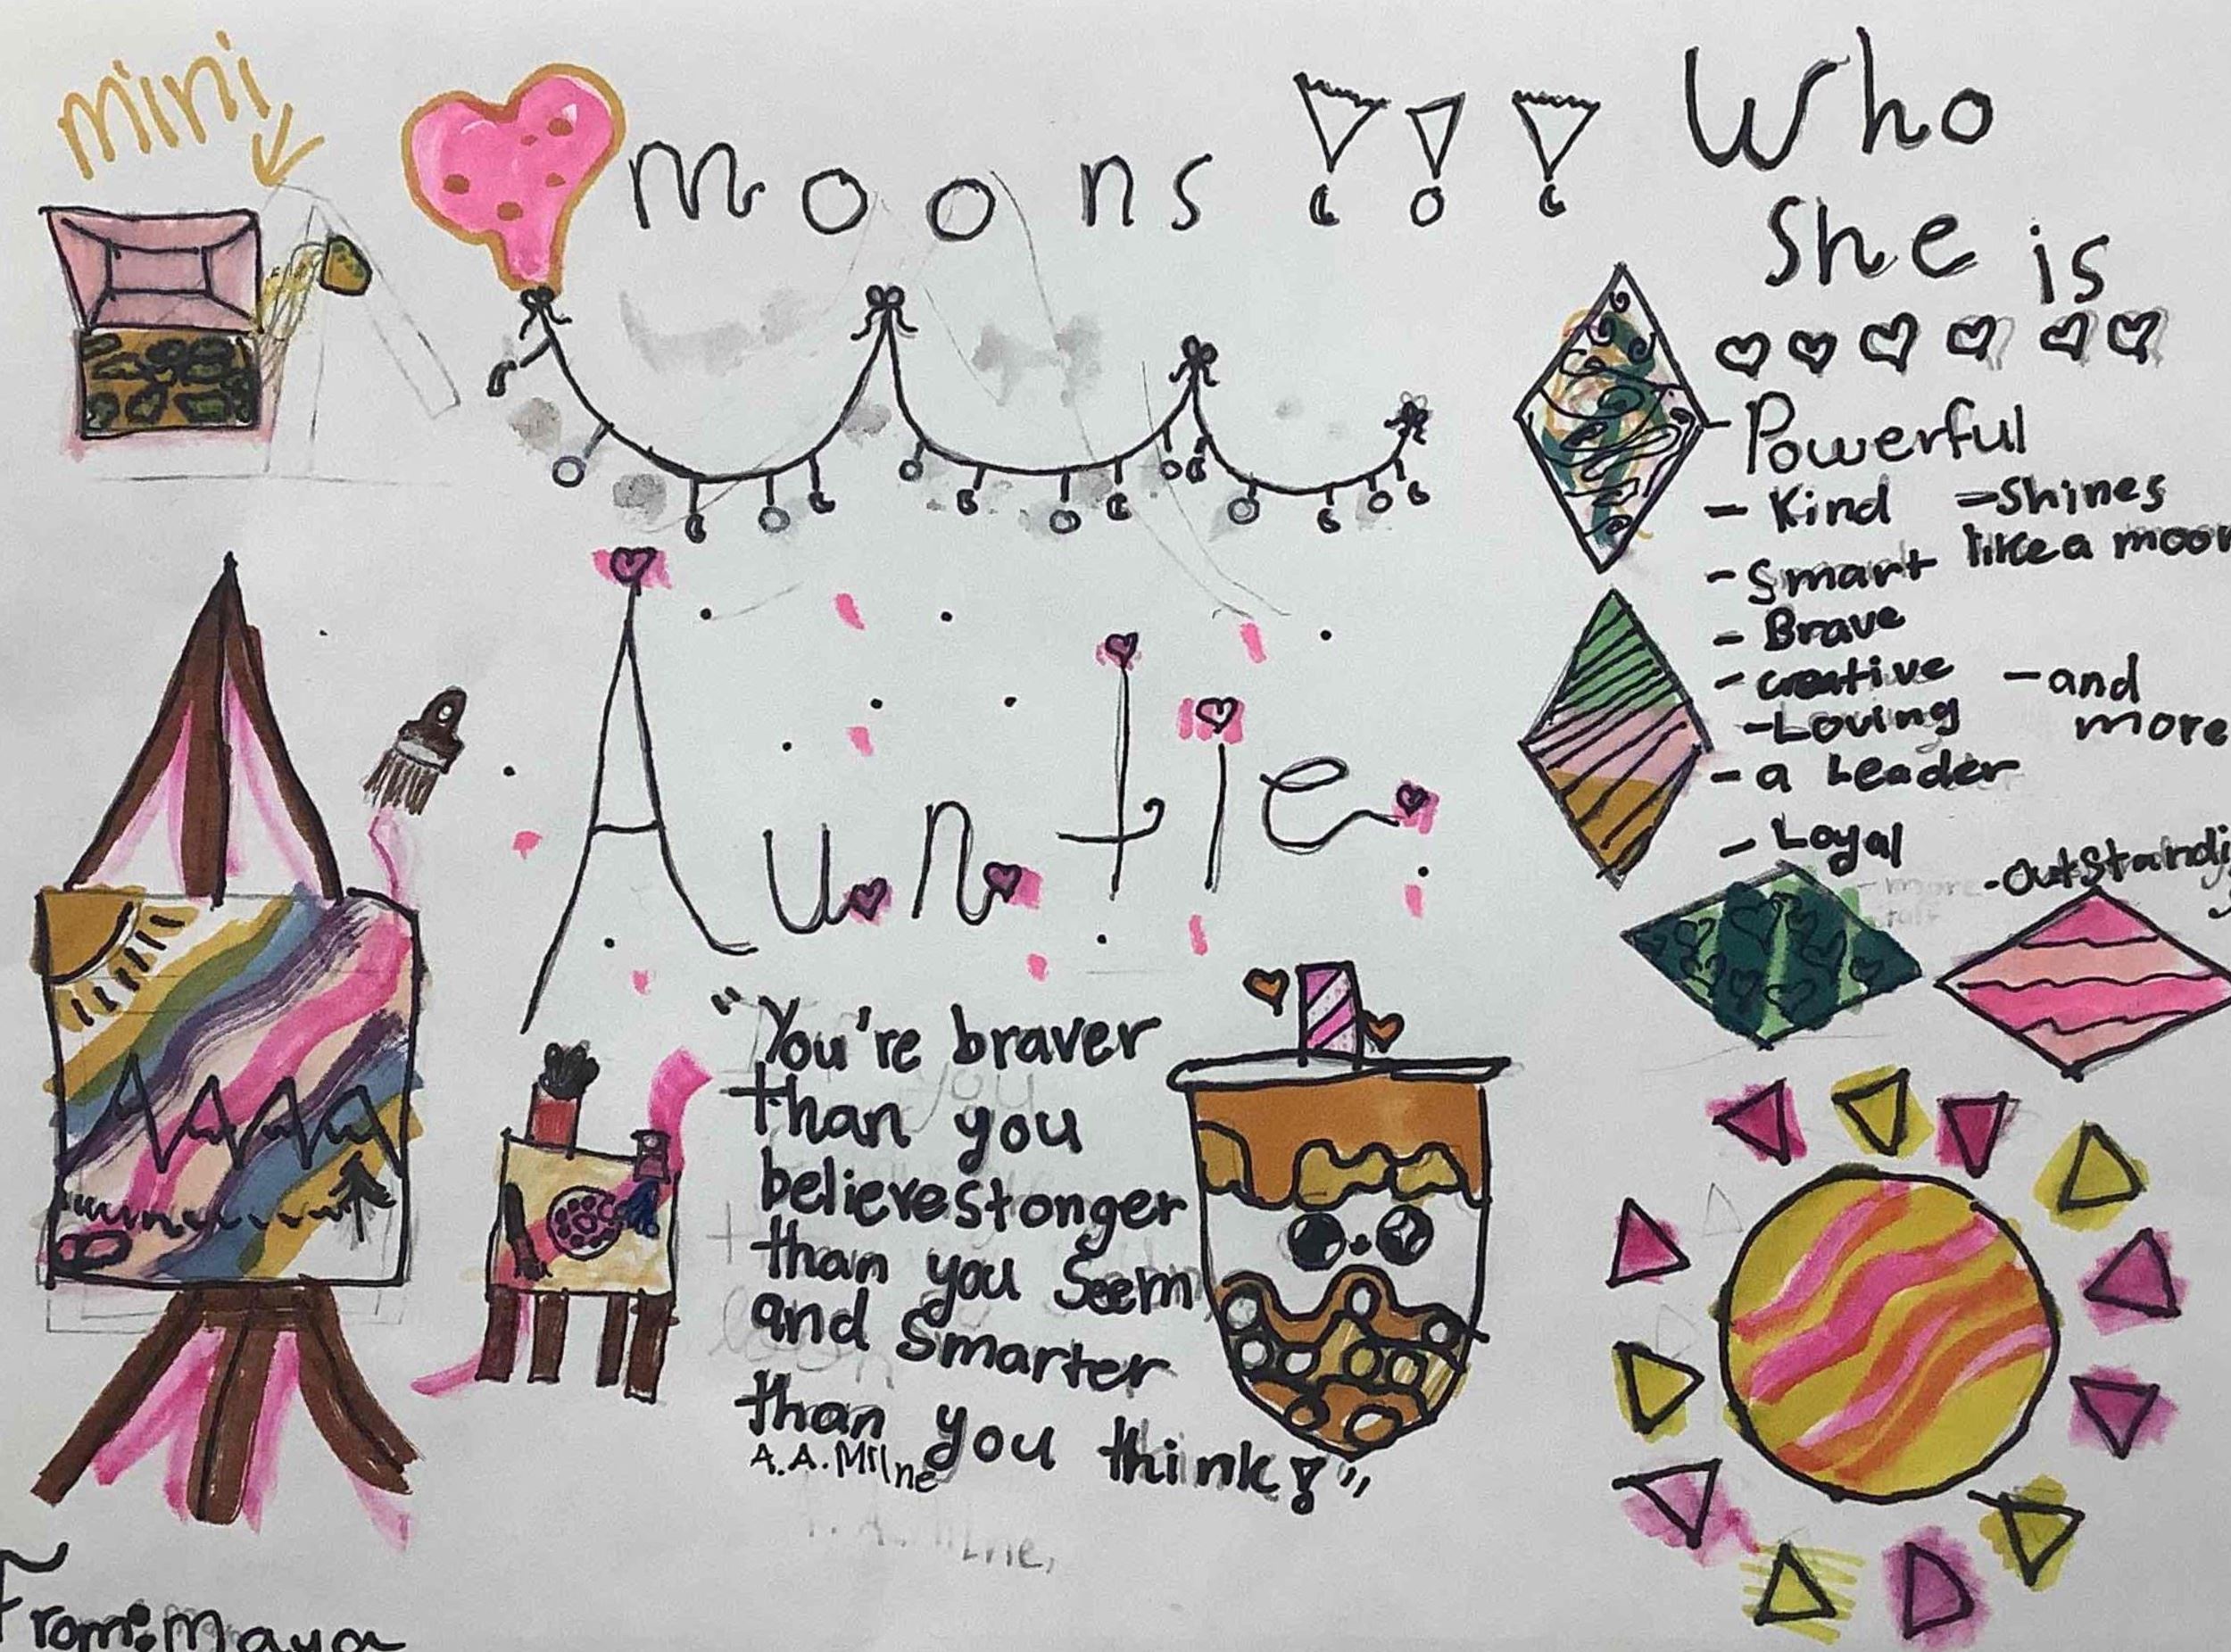 mini
moons
Auntie
"You're braver
than you
believe stonger
than you seem
and smarter
than you think!"
A.A. Milne
Who
She is
- Powerful
- Kind
- Smart
- Brave
- creative
- Loving
- a Leader
- Loyal
- Shines
like a moon
- and
more
- outstanding
From: Maya